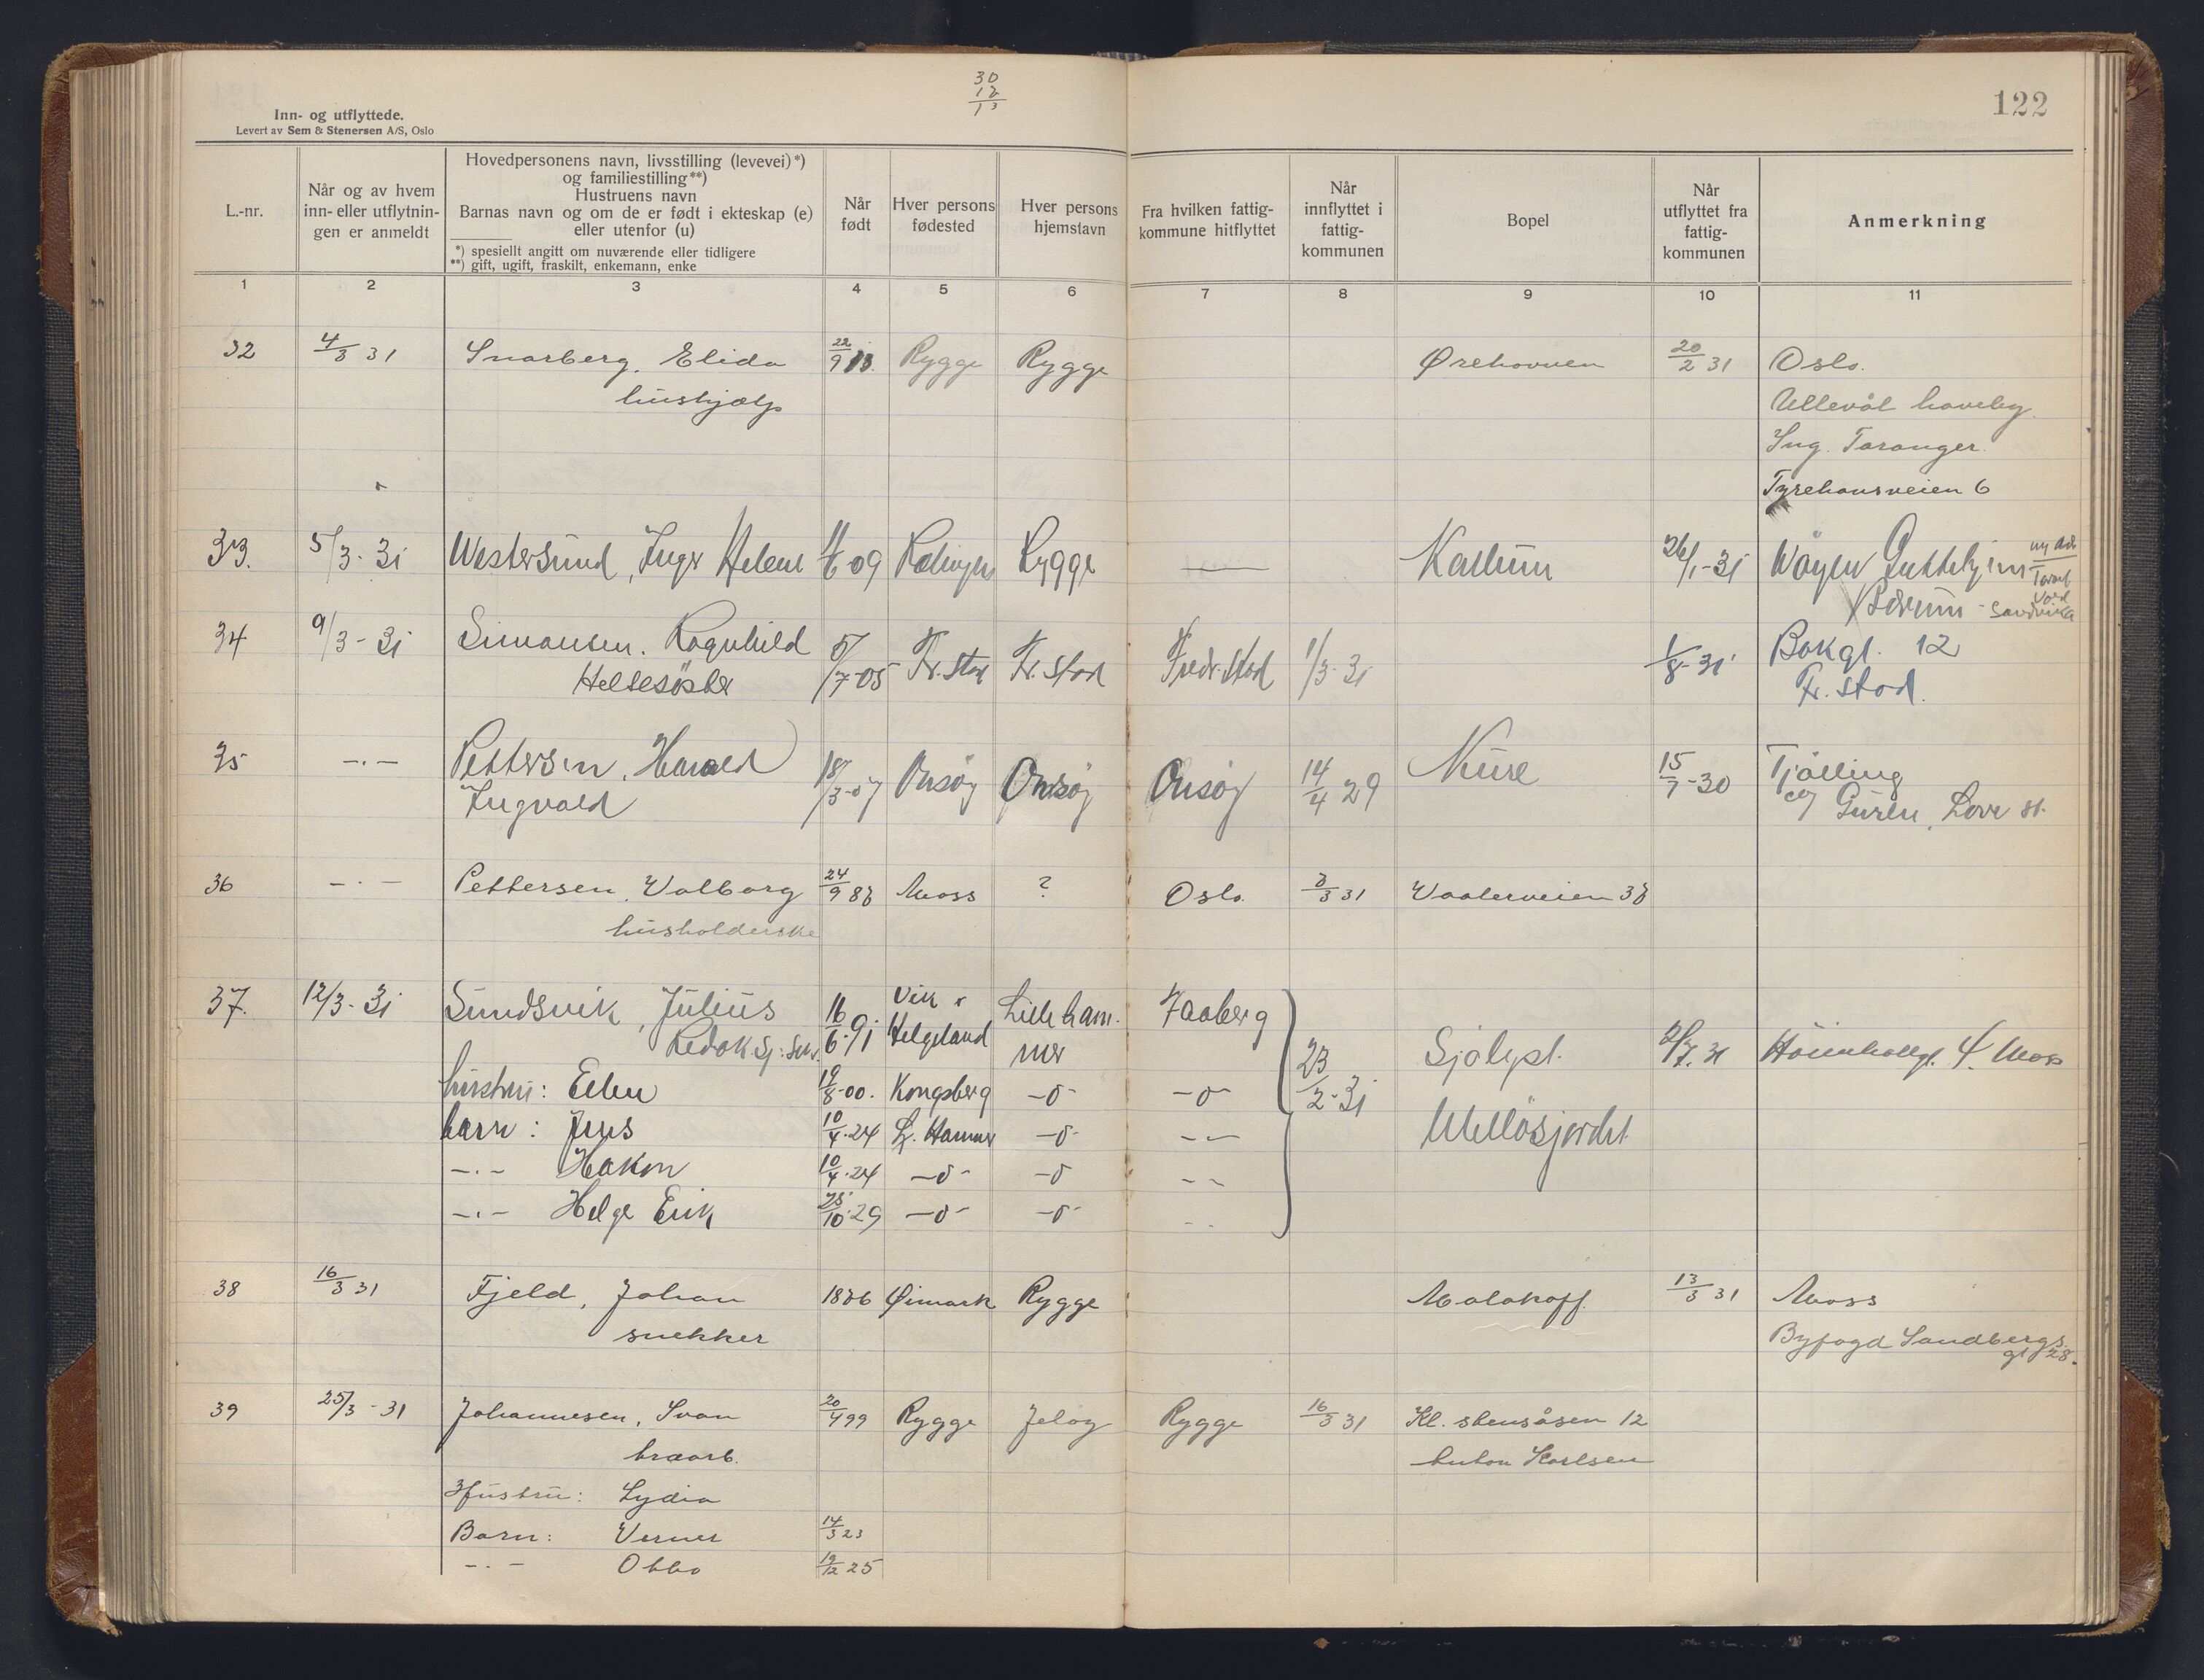 30
12
13
122
Inn- og utflyttede.
Levert av Sem & Stenersen A/S, Oslo
L.-nr.
Når og av hvem inn- eller utflytnin- gen er anmeldt
Hovedpersonens navn, livsstilling (levevei)*)
og familiestilling**)
Hustruens navn
Barnas navn og om de er født i ekteskap (e)
eller utenfor (u)
*) spesiellt angitt om nuværende eller tidligere
**) gift, ugift, fraskilt, enkemann, enke
Når født
Hver persons fødested
Hver persons hjemstavn
Fra hvilken fattig- kommune hitflyttet
Når innflyttet i fattig- kommunen
Bopel
Når utflyttet fra fattig- kommunen
Anmerkning
1 2 3 4 5 6 7 8 9 10 11
32 4/3 31 Snarberg, Elida 22/9 13. Rygge Rygge Ørehovnen 20/2 31 Oslo.
hushjælp Ullevål haveby.
Ing. Taranger.
Tyrehansveien 6
33. 5/3-31 Westersund, Inger Helene -09 Rygge — Kallum 26/1-31 Vøyen Guttehjem ny adr
Bærum - Sandvika
34 9/3-31 Simonsen, Ragnhild 5/7-05 Fr.stad Fr.stad Fredr.stad 1/3-31 1/8-31 Bakgt. 12
Helsesöster Fr.stad.
35 -.- Pettersen, Harald 18/3-07 Onsøy Onsøy Onsøy 14/4 29 Kure 15/7-30 Tjølling
Ingvald c/o Guren, Love st.
36 -.- Pettersen, Valborg 24/9 88 Moss ? Oslo 8/3 31 Vaalerveien 38
husholderske
37. 12/3-31 Sundsvik, Julius 16/6-91 Vik i Helgeland Lillehammer Faaberg 23/2-31 Sjølyst. 31 4. Moss
Redaksj: sekr.
hustru: Ellen 19/8-00. Kongsberg -o- -o- Melløsjordet
barn: Jens 10/4-24 L. Hammer -o- -.-
-.- Håkon 10/4-24 -o- -o- --
-.- Helge Erik 10-29 -o- -o- --
38 16/3 31 Fjeld, Johan 1886 Øimark Rygge Malakoff. 13/3 31 Moss
snekker Byfogd Sandbergs gt 28.
39 25/3-31 Johannesen, Ivan 20/4 99 Rygge Jeløy Rygge 16/3 31 Kl. stensåsen 12
braarb. Anton Karlsen
Hustru: Lydia
Barn: Verner 14/3 23
-.- Otto 19/12 25